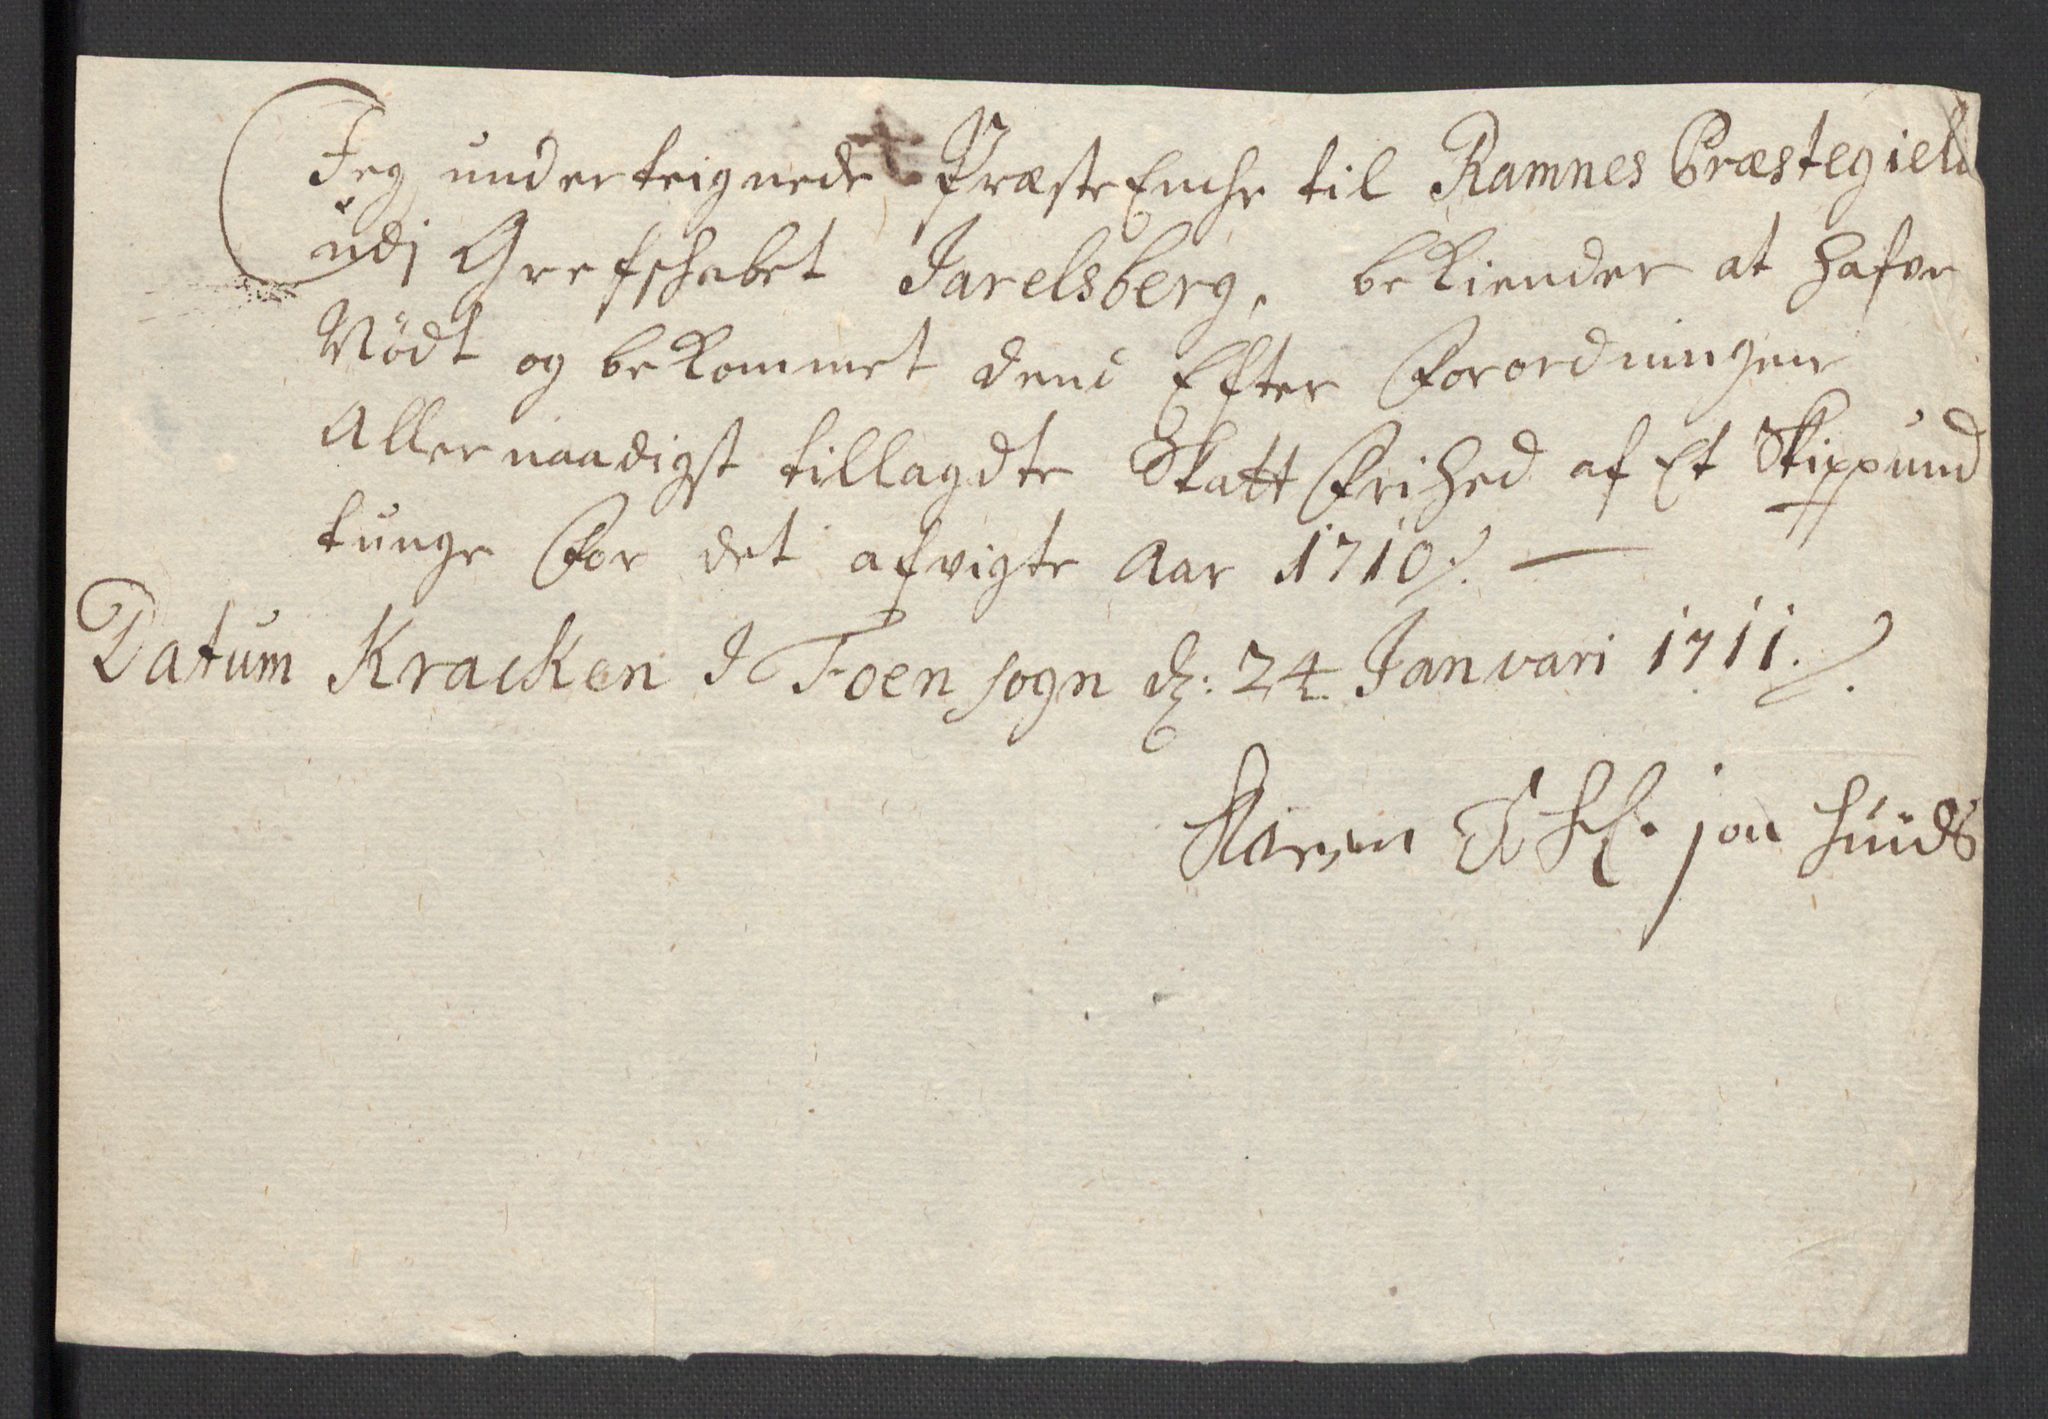 Jeg underteignede Præste Enche til Ramnes Præstegield
udj Grefschabet Jarelsberg, bekiender at hafve
Nÿdt og bekommet dend Efter Forordningen
Allernaadigst tillagdte Skatt Frihed af Et Skippund
tunge For det afvigte Aar 1710 ⁒ —
Datum Kracken I Foen sogn d: 24 Januari 1711 ⁒
Karen Sl. jon huids